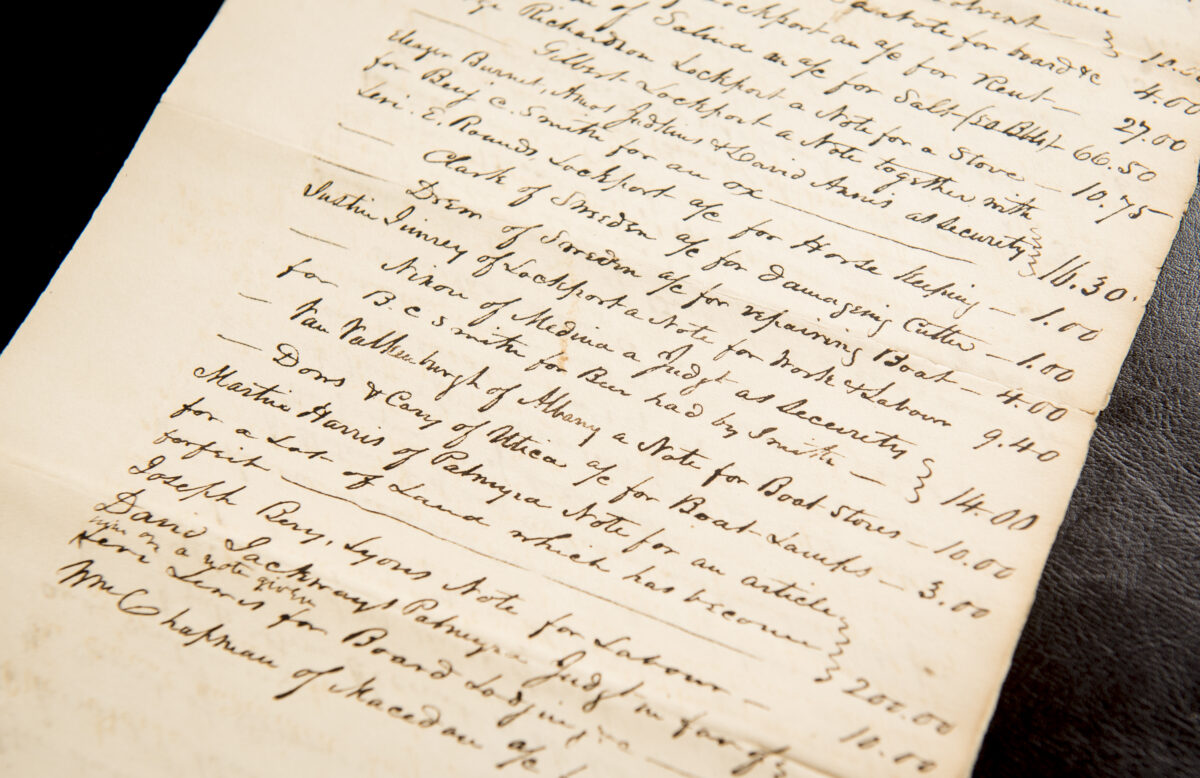 Banknote for board &c 10.
Lockport an a/c for Rent — 4.00
of Salina an a/c for Salt (50 Bbls) 27.00
Richardson Lockport a Note for a Stove — 66.50
Gilbert Lockport a Note together with 10.75
Eleazer Burnet, Amos Judkins & David Annis as Security
for Benj. C. Smith for an ox — 16.30
Levi. E. Rounds Lockport a/c for Horse keeping — 1.00
— Clark of Sweden a/c for damaging Cutter — 1.00
— Drem of Sweden a/c for repairing Boat — 4.00
Justin of Lockport a Note for Work & Labour 9.40
— Nixon of Medina a Judgt as Security
for B. C Smith for Beer had by Smith — 14.00
— Van Valkenburgh of Albany a Note for Boat Stores — 10.00
— Dows & Cary of Utica a/c for Boat Lamps — 3.00
Martin Harris of Palmyra Note for an article
for a Lot of Land which has become
forfeit — 200.00
Joseph Lyons Note for Labour — 10.00
David Jackways Palmyra Judgt in favor of
on a note given
Levi Lewis for Board Lodging &c
Wm Chapman of Macedon a/c